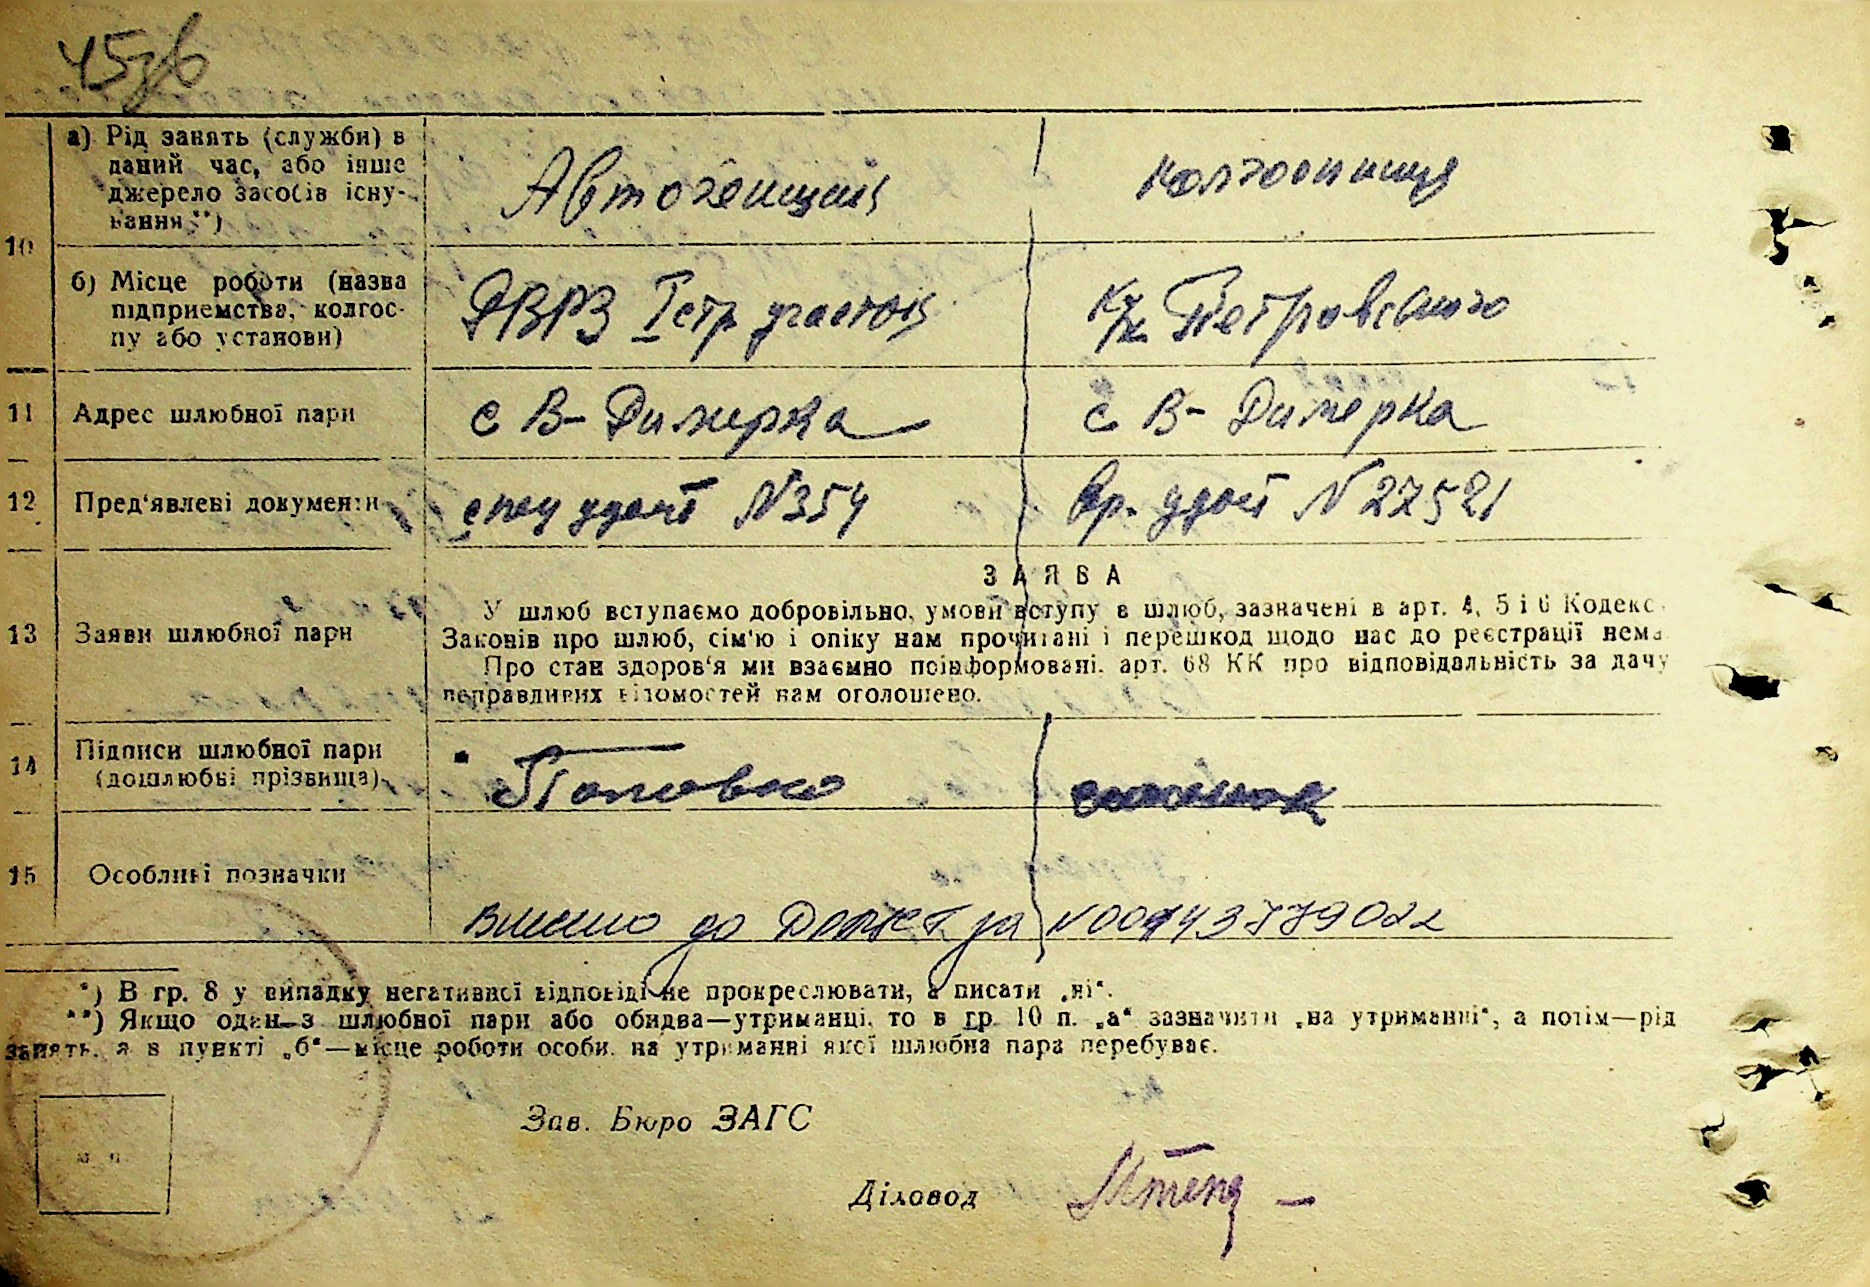 45зв
а) Рід занять (служби) в
даний час, або інше
джерело засобів існу-
вання **)
Автогенщик
колгоспниця
10
б) Місце роботи (назва
підприємства, колгос-
пу або установи)
ДВРЗ І стр участок
к/к Петровского
11 Адрес шлюбної пари
с В-Димерка
с В-Димерка
12 Пред'явлені документи
спец удост N354
вр. удост N 27521
13 Заяви шлюбної пари
ЗАЯВА
У шлюб вступаємо добровільно, умови вступу в шлюб, зазначені в арт. 4, 5 і 6 Кодекс
Законів про шлюб, сім'ю і опіку нам прочитані і перешкод щодо нас до реєстрації нема
Про стан здоров'я ми взаємно поінформовані. арт. 68 КК про відповідальність за дачу
неправдивих відомостей нам оголошено.
14 Підписи шлюбної пари
(дошлюбні прізвища)
Поповко
15 Особливі позначки
Внесено до ДРАЦСГ за N00443779022
*) В гр. 8 у випадку негативної відповіді не прокреслювати, а писати „ні“.
**) Якщо один з шлюбної пари або обидва—утриманці, то в гр. 10 п. „а“ зазначити „на утриманні“, а потім—рід
занять, а в пункті „б“—місце роботи особи, на утриманні якої шлюбна пара перебуває.
Зав. Бюро ЗАГС
м. п.
Діловод